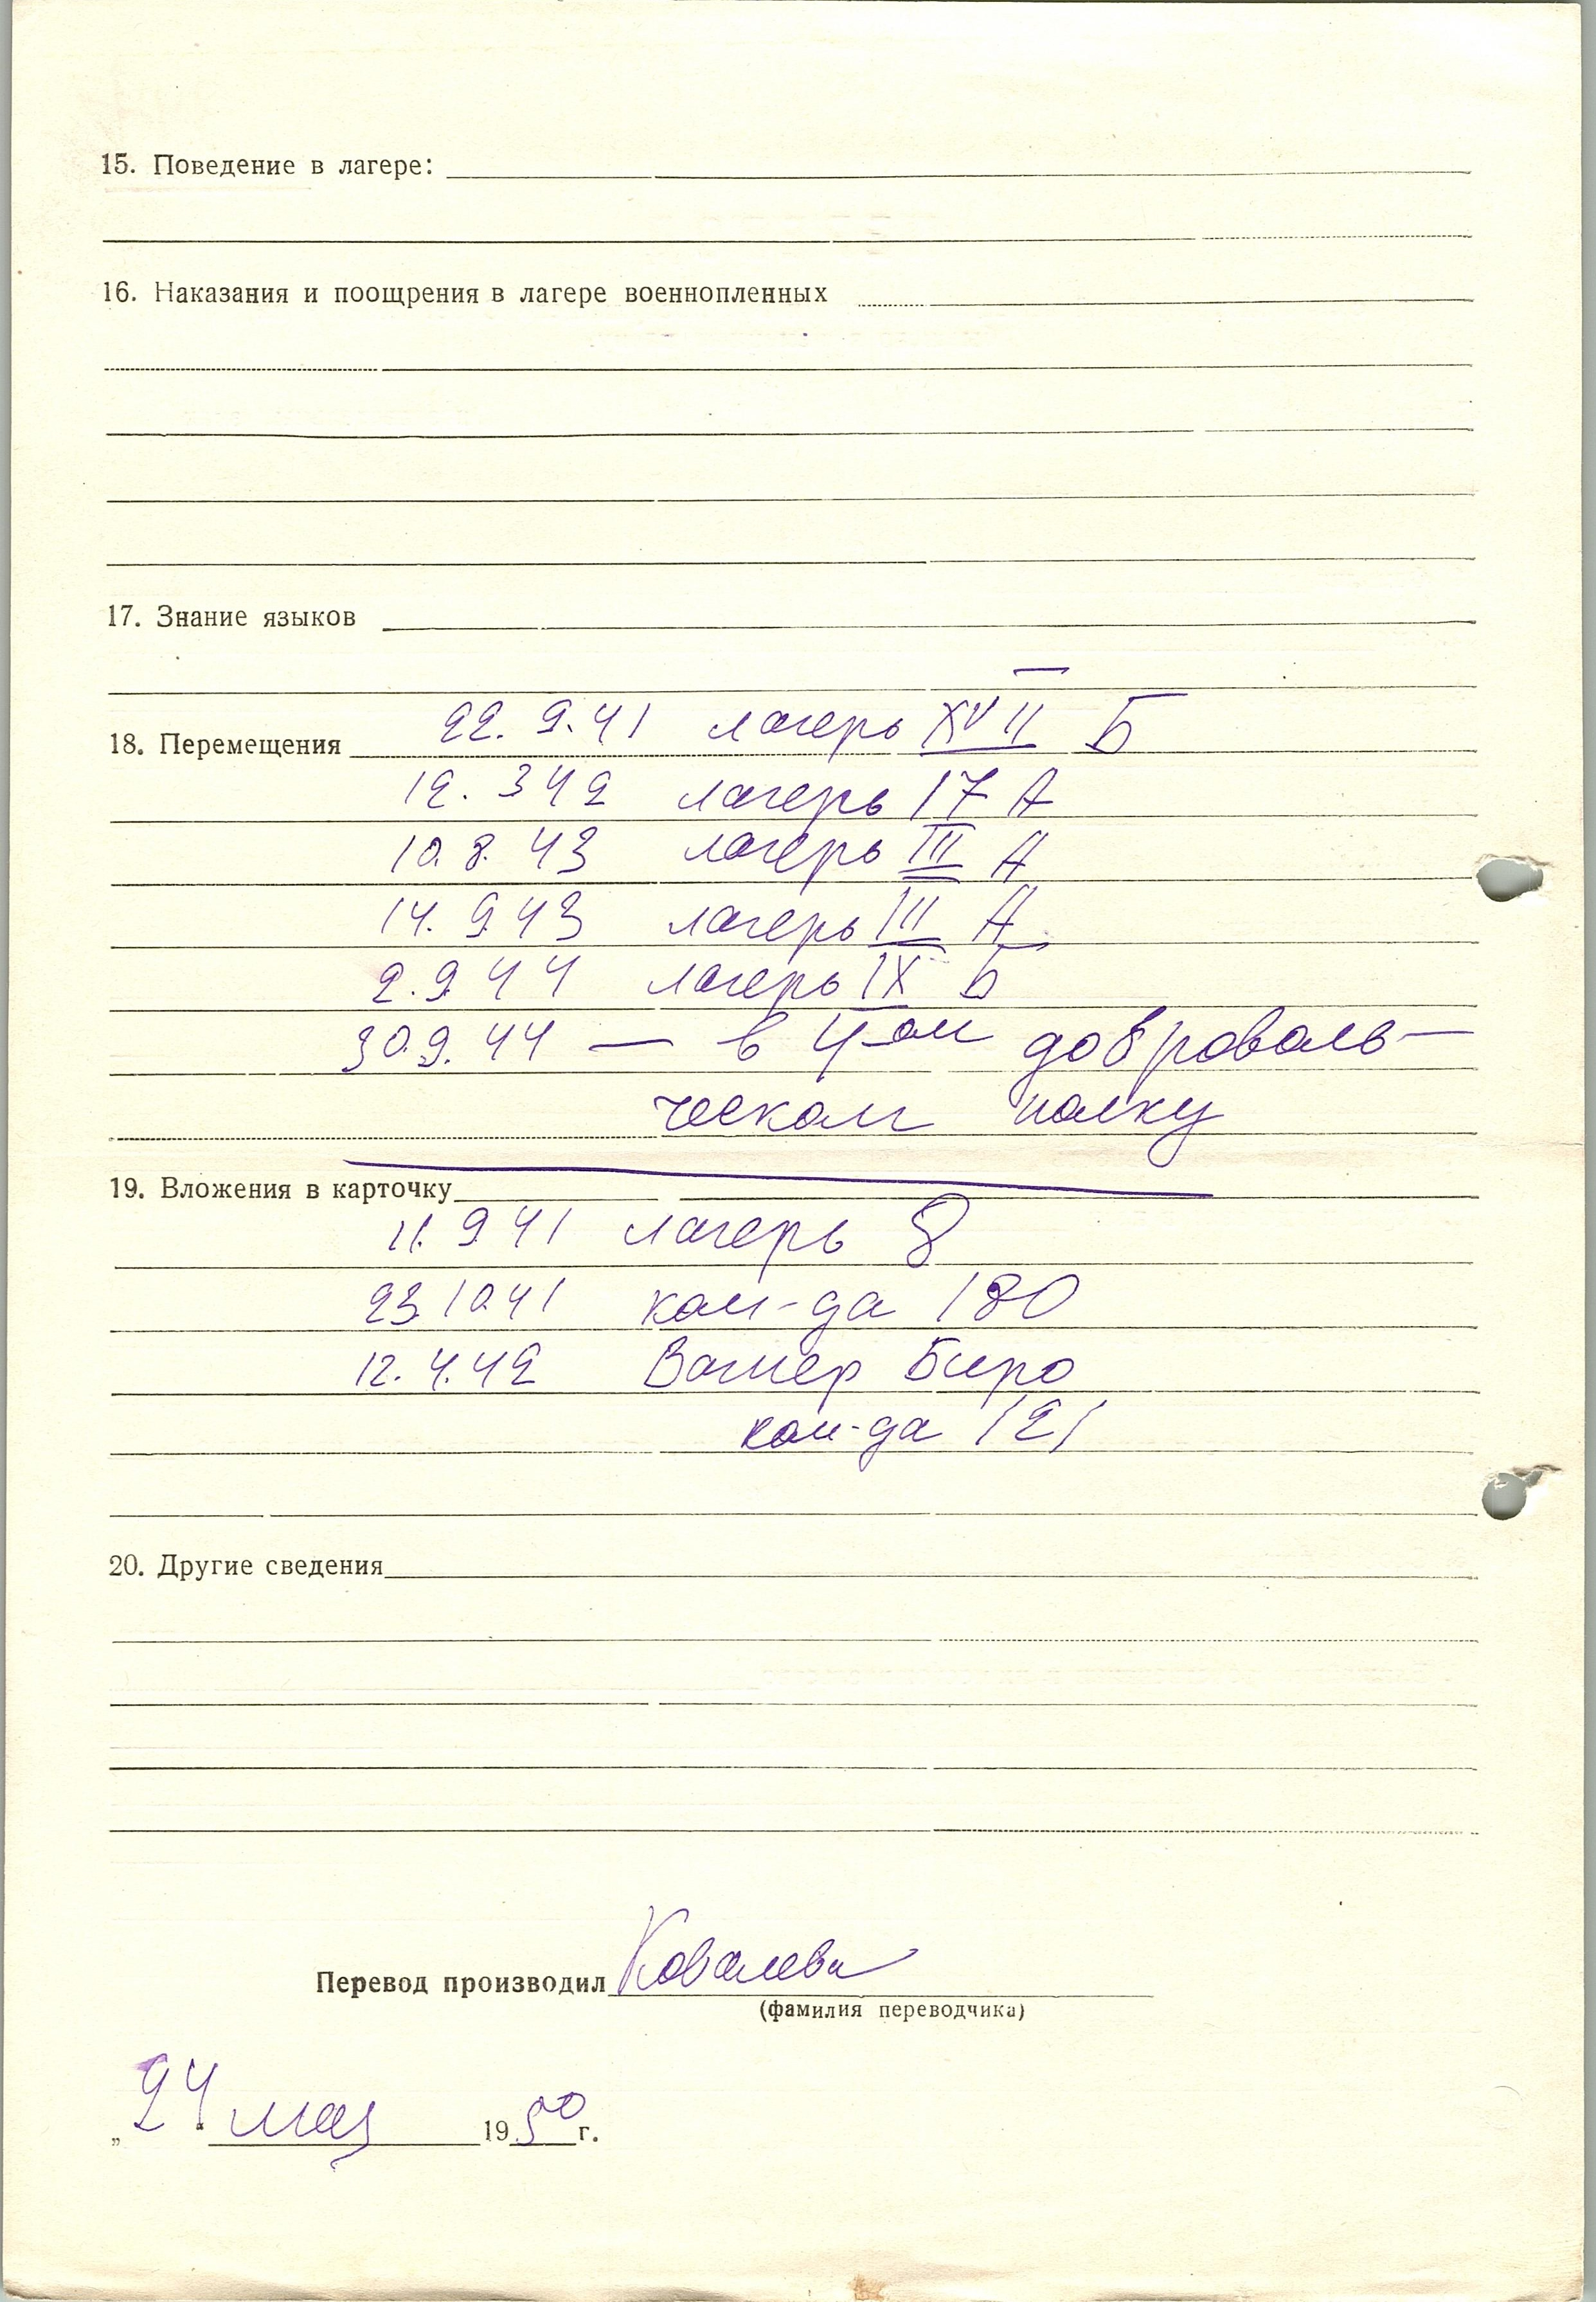 15. Поведение в лагере:
16. Наказания и поощрения в лагере военнопленных
17. Знание языков
22. 9. 41 лагерь XVII Б
18. Перемещения
12. 3 42 лагерь 17 А
10. 8. 43 лагерь III А
14. 9 43 лагерь III А
2. 9. 44 лагерь IX Б
30.9. 44 — в 4-ом доброваль-
ческом полку
19. Вложения в карточку
11. 9 41 лагерь 8
23 10 41 ком-да 180
12. 4. 42 Вагнер Биро
ком-да 121
20. Другие сведения
Перевод производил Ковалева
(фамилия переводчика)
„24" мая 1950 г.